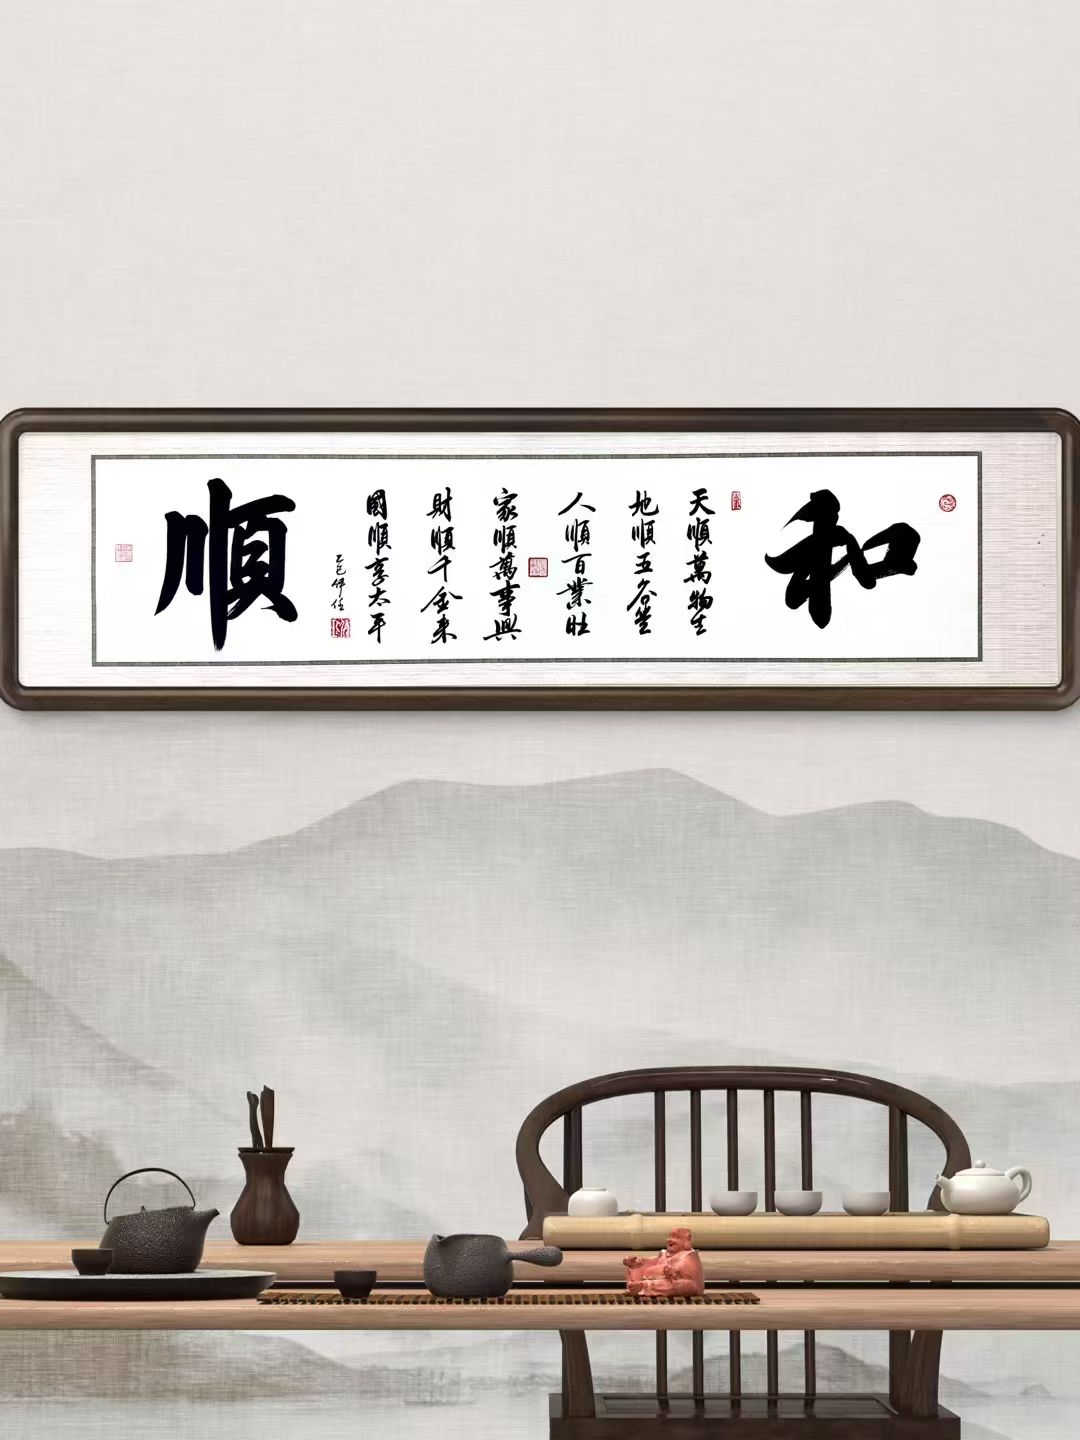 和
天順萬物生
地順五谷登
人順百業旺
家順萬事興
財順千金來
國順享太平
乙巳仲任
順